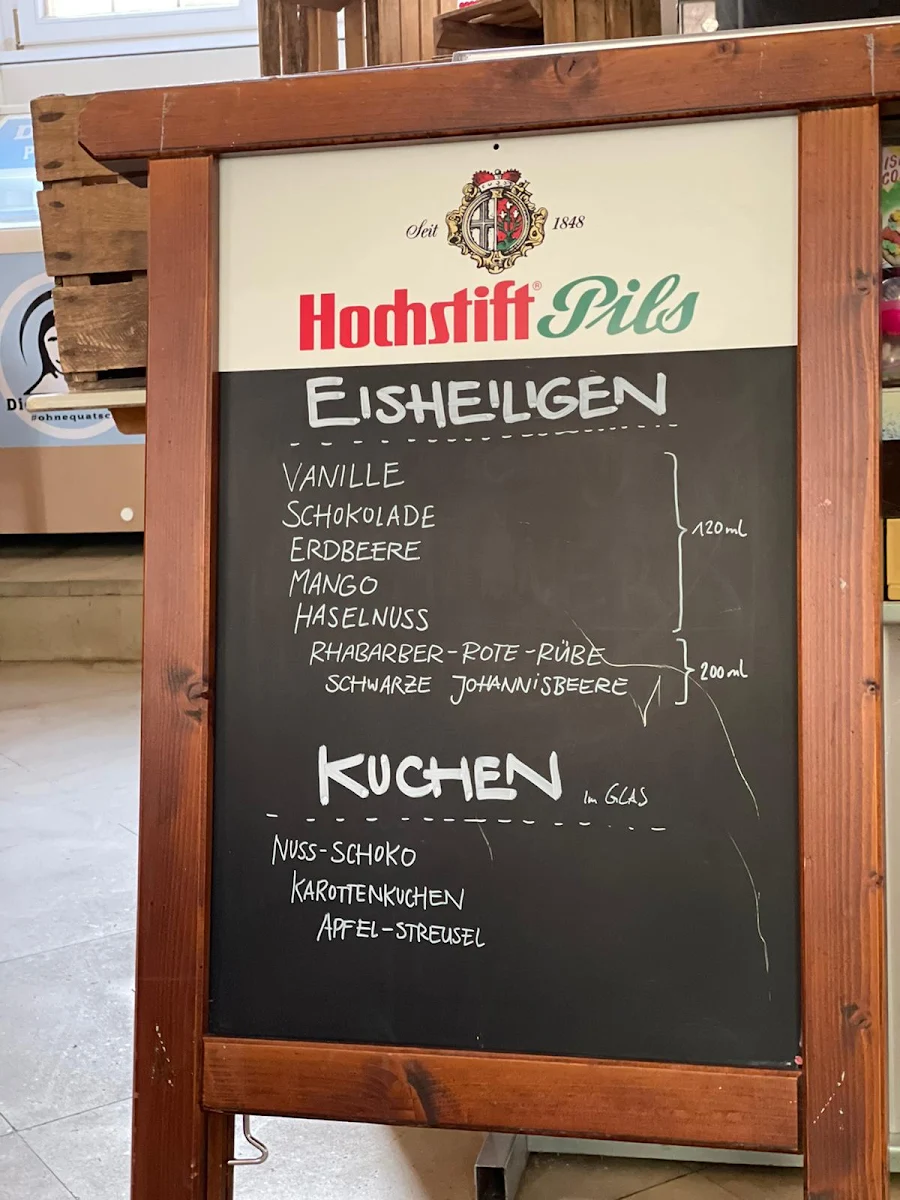 Seit 1848
Hochstift® Pils
EISHEILIGEN
VANILLE
SCHOKOLADE
ERDBEERE
MANGO
HASELNUSS
120ml
RHABARBER-ROTE-RÜBE
SCHWARZE JOHANNISBEERE
200ml
KUCHEN im GLAS
NUSS-SCHOKO
KAROTTENKUCHEN
APFEL-STREUSEL
Di
#ohnequatsc